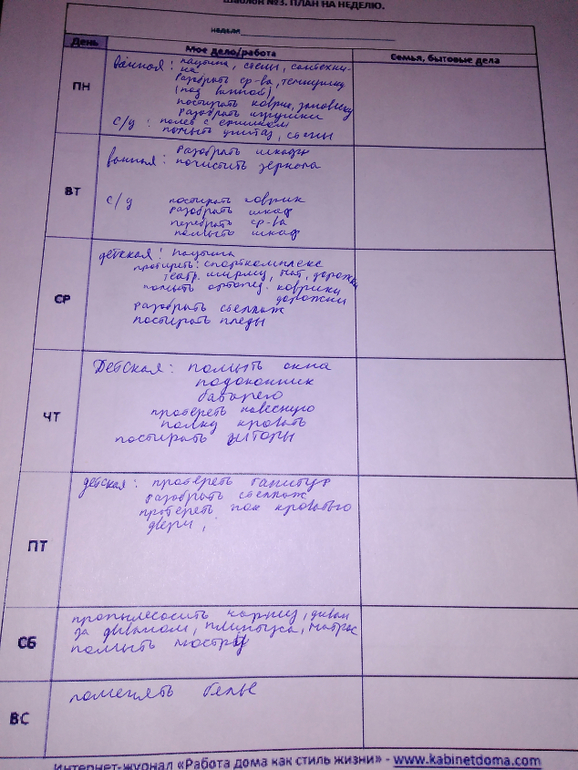 Шаблон №3. ПЛАН НА НЕДЕЛЮ.
неделя
День
Мое дело/работа
Семья, бытовые дела
ПН
ванная: паутина, стены, сантехни-
ка
разобрать ср-ва, технику
(под ванной)
постирать коврик, занавеску
разобрать игрушки
с/у: полев с ершиком
помыть унитаз, стены
ВТ
разобрать шкафы
ванная: почистить зеркала
с/у постирать коврик
разобрать шкаф
перебрать ср-ва
помыть шкаф
СР
детская: паутина
протереть: спорткомплекс
театр. ширму, мат, дорожки
помыть ортопед. коврики
дорожки
разобрать стеллаж
постирать пледы
ЧТ
Детская: помыть окна
подоконник
батарею
протереть навесную
полку кровать
постирать шторы
ПТ
детская: протереть гарнитур
разобрать стеллаж
протереть под кроватью
двери,
СБ
пропылесосить карниз, диван
за диваном, плинтуса, матрас
помыть люстру
ВС
поменять белье
Интернет-журнал «Работа дома как стиль жизни» - www.kabinetdoma.com